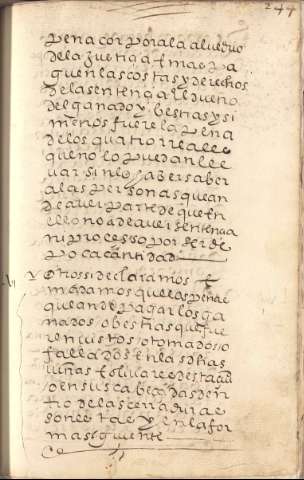 244
pena corporal a aluedrio
dela justiçia E mas pa
guen las costas y derechos
de la sentençia Al dueño
del ganado y bestias y si
menos fuere la pena
de los quatro rreales
que no lo puedan lle
uar sin lo haber saber
a las personas que an
de auer parte de que en
ello no a de auer sentençia
ni proçesso por ser de
poca cantidad
y otrossi declaramos E
mãdamos que las penas
que an de pagar los ga
nados o bestias que fue
ren uistos o tomados o
fallados en las dhas
uiñas E oliuares
o en sus cabeçadas den
tro de las çerraduras
son estas y en la for
ma siguiente